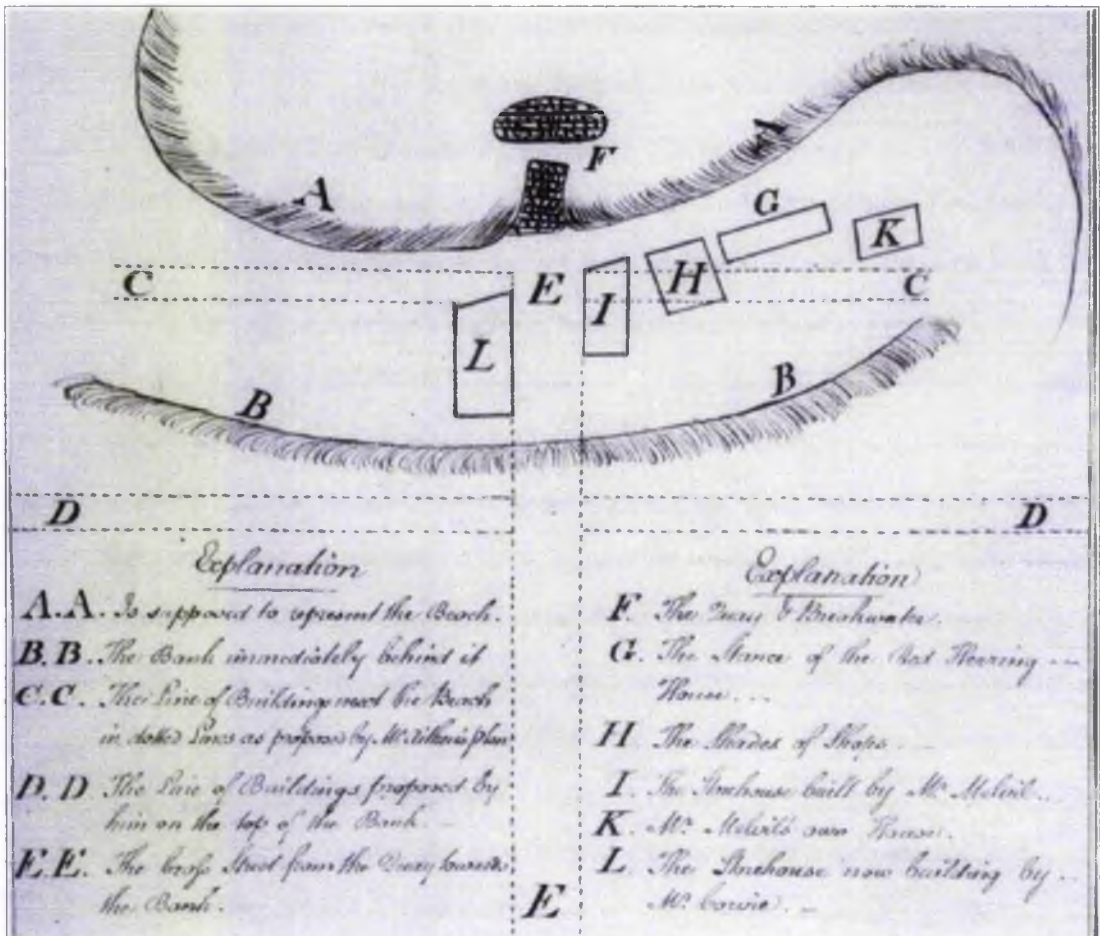 A
F
A
G
K
C
E
H
C
I
L
B
B
D
D
Explanation
A.A. Is supposed to represent the Beach.
B.B. The Bank immediately behind it
C.C. The Line of Buildings next the Beach
in dotted Lines as proposed by Mr. plan
D.D The Line of Buildings proposed by
him on the top of the Bank.
E.E. The Cross Street from the Quay towards
the Bank.
E
Explanation
F. The Quay & Breakwater.
G. The Stance of the Red Herring
House...
H The Shades of Shops
I. The Storehouse built by Mr. Melvil..
K. Mr. Melvil's own House.
L. The Storehouse now building by..
Mr. Cowie.